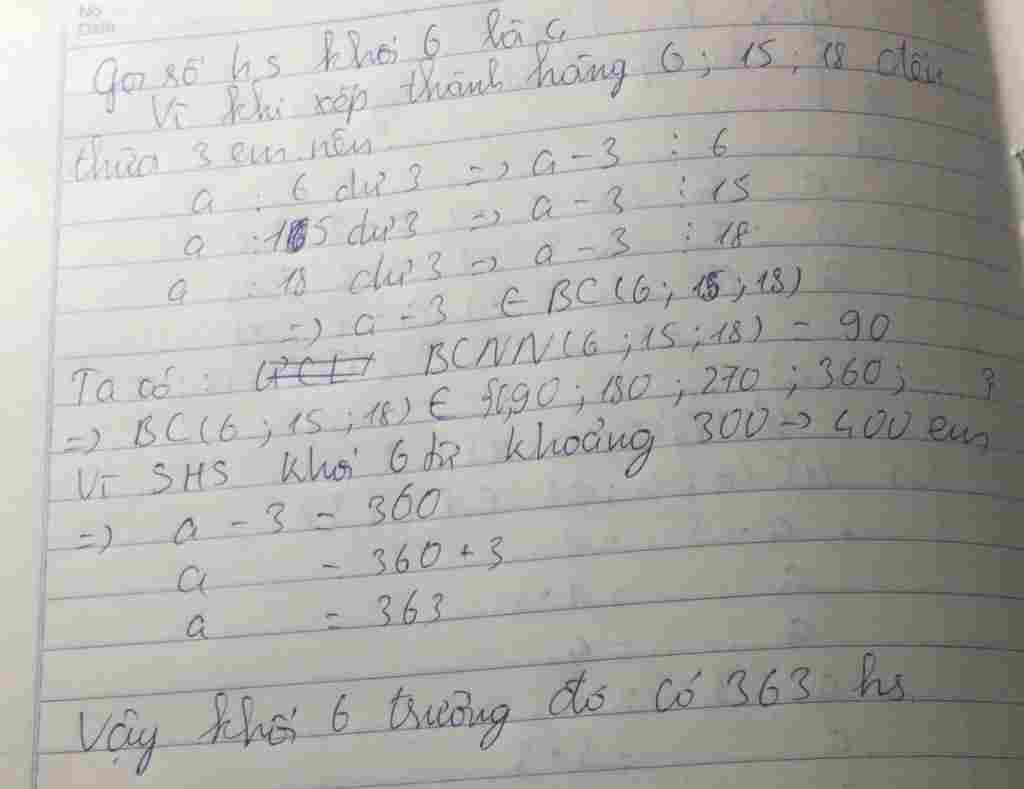 No
Date
Gọi số hs khối 6 là a
Vì khi xếp thành hàng 6; 15; 18 đều
thừa 3 em nên
a : 6 dư 3 => a - 3 ⋮ 6
a : 15 dư 3 => a - 3 ⋮ 15
a : 18 dư 3 => a - 3 ⋮ 18
=> a - 3 ∈ BC(6; 15; 18)
Ta có: BCNN(6; 15; 18) = 90
=> BC(6; 15; 18) ∈ {0; 90; 180; 270; 360; ... }
Vì SHS khối 6 từ khoảng 300 -> 400 em
=> a - 3 = 360
a = 360 + 3
a = 363
Vậy khối 6 trường đó có 363 hs